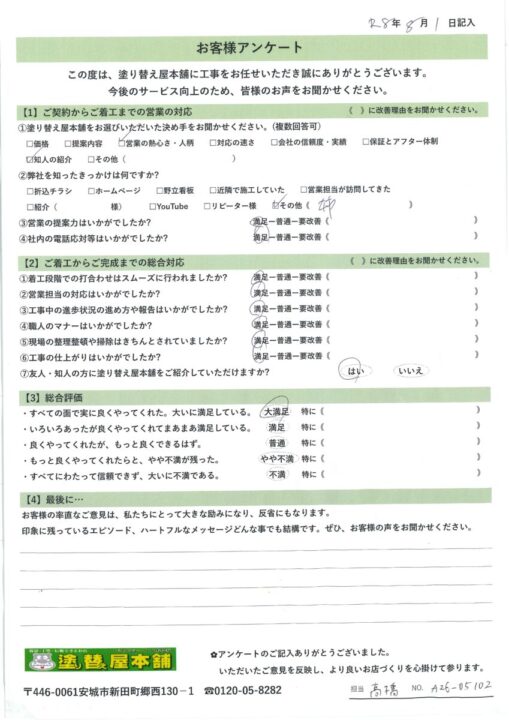 R8年 8月 1日記入
お客様アンケート
この度は、塗り替え屋本舗に工事をお任せいただき誠にありがとうございます。
今後のサービス向上のため、皆様のお声をお聞かせください。
【1】ご契約からご着工までの営業の対応 《 》に改善理由をお聞かせください。
①塗り替え屋本舗をお選びいただいた決め手をお聞かせください。(複数回答可)
□価格 □提案内容 ☑営業の熱心さ・人柄 □対応の速さ □会社の信頼度・実績 □保証とアフター体制
☑知人の紹介 □その他（ ）
②弊社を知ったきっかけは何ですか?
□折込チラシ □ホームページ □野立看板 □近隣で施工していた □営業担当が訪問してきた
□紹介（ 様） □YouTube □リピーター様 ☑その他《 》
③営業の提案力はいかがでしたか? 満足ー普通ー要改善《 》
④社内の電話応対等はいかがでしたか? 満足ー普通ー要改善《 》
【2】ご着工からご完成までの総合対応 《 》に改善理由をお聞かせください。
①着工段階での打合わせはスムーズに行われましたか? 満足ー普通ー要改善《 》
②営業担当の対応はいかがでしたか? 満足ー普通ー要改善《 》
③工事中の進歩状況の進め方や報告はいかがでしたか? 満足ー普通ー要改善《 》
④職人のマナーはいかがでしたか? 満足ー普通ー要改善《 》
⑤現場の整理整頓や掃除はきちんとされていましたか? 満足ー普通ー要改善《 》
⑥工事の仕上がりはいかがでしたか? 満足ー普通ー要改善《 》
⑦友人・知人の方に塗り替え屋本舗をご紹介していただけますか? はい いいえ
【3】総合評価
・すべての面で実に良くやってくれた。大いに満足している。 大満足 特に《 》
・いろいろあったが良くやってくれてまあまあ満足している。 満足 特に《 》
・良くやってくれたが、もっと良くできるはず。 普通 特に《 》
・もっと良くやってくれたらと、やや不満が残った。 やや不満 特に《 》
・すべてにわたって信頼できず、大いに不満である。 不満 特に《 》
【4】最後に…
お客様の率直なご意見は、私たちにとって大きな励みになり、反省にもなります。
印象に残っているエピソード、ハートフルなメッセージどんな事でも結構です。ぜひ、お客様の声をお聞かせください。
塗り替え屋本舗
✿アンケートのご記入ありがとうございました。
いただいたご意見を反映し、より良いお店づくりを心掛けて参ります。
〒446-0061安城市新田町郷西130－1 ☎0120-05-8282
担当 高橋 NO. A26-05102